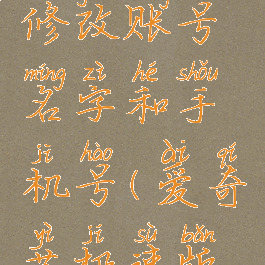 修改账号
míng zì hé shǒu
名字和手
jī hào ài qí
机号(爱奇
yì jí sù bǎn
艺极速版